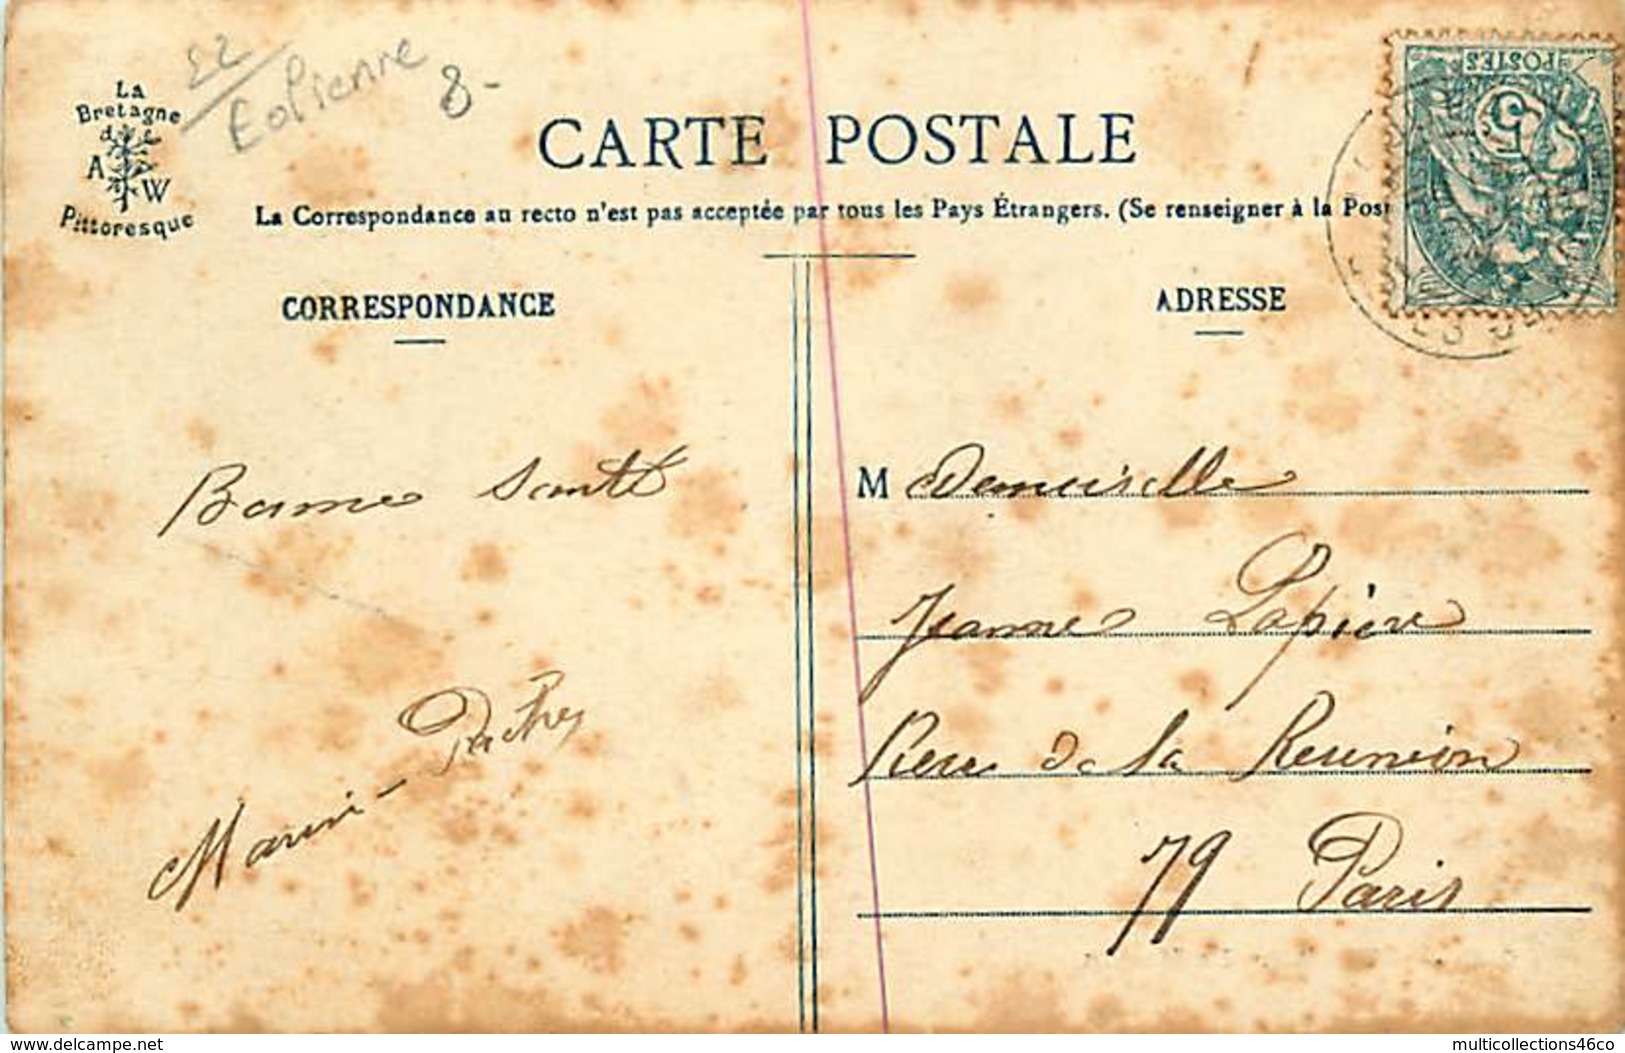 22
Eolienne 8-
La
Bretagne
A W
Pittoresque
CARTE POSTALE
La Correspondance au recto n'est pas acceptée par tous les Pays Étrangers. (Se renseigner à la Pos
POSTES
5
CORRESPONDANCE
ADRESSE
Bonne Santé
M Demoiselle
Jeanne Lapière
Rue de la Reunion
79 Paris
Marie-
delcampe.net
multicollections46co